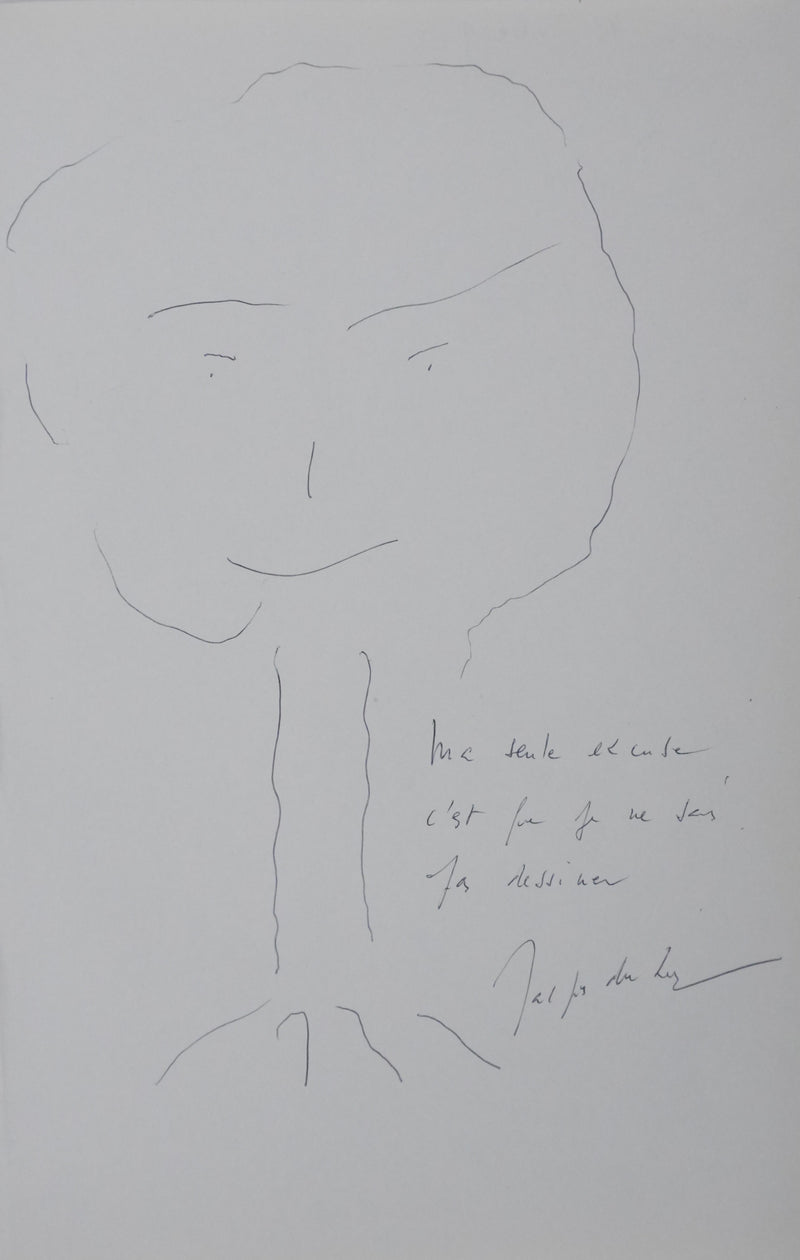 Ma seule excuse
c'est que je ne sais
pas dessiner
Jacques du Luz